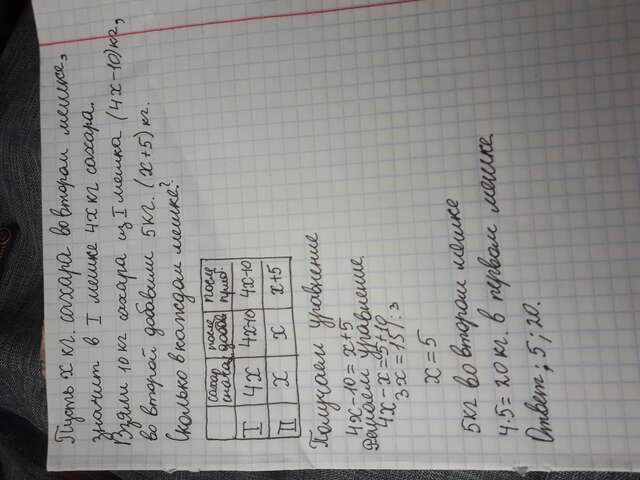 Пусть x кг. сахара во втором мешке,
значит в I мешке 4x кг сахара.
Взяли 10 кг сахара из I мешка (4x-10) кг,
во второй добавили 5 кг. (x+5) кг.
Сколько в каждом мешке?
сахар сначал после добав. после
I 4x 4x-10 4x-10
II x x x+5
Получаем уравнение
4x-10=x+5
Решаем уравнение.
4x-x=5+10
3x=15/:3
x=5
5кг во втором мешке
4·5=20 кг. в первом мешке.
Ответ; 5; 20.